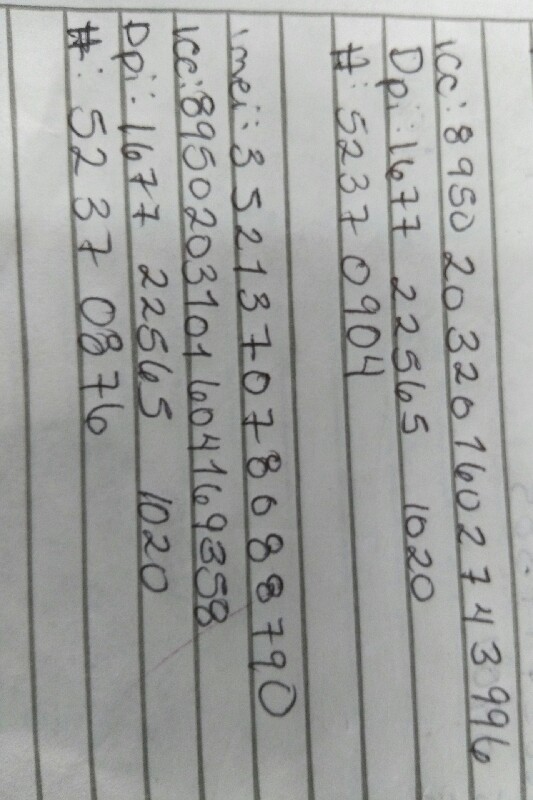 icc: 8950 20 320 1602 7 43 996
Dpi: 1677 22565 1020
#: 5237 0904
imei: 352137078688790
icc: 8950203101604169358
Dpi: 1677 22565 1020
#: 5237 0876